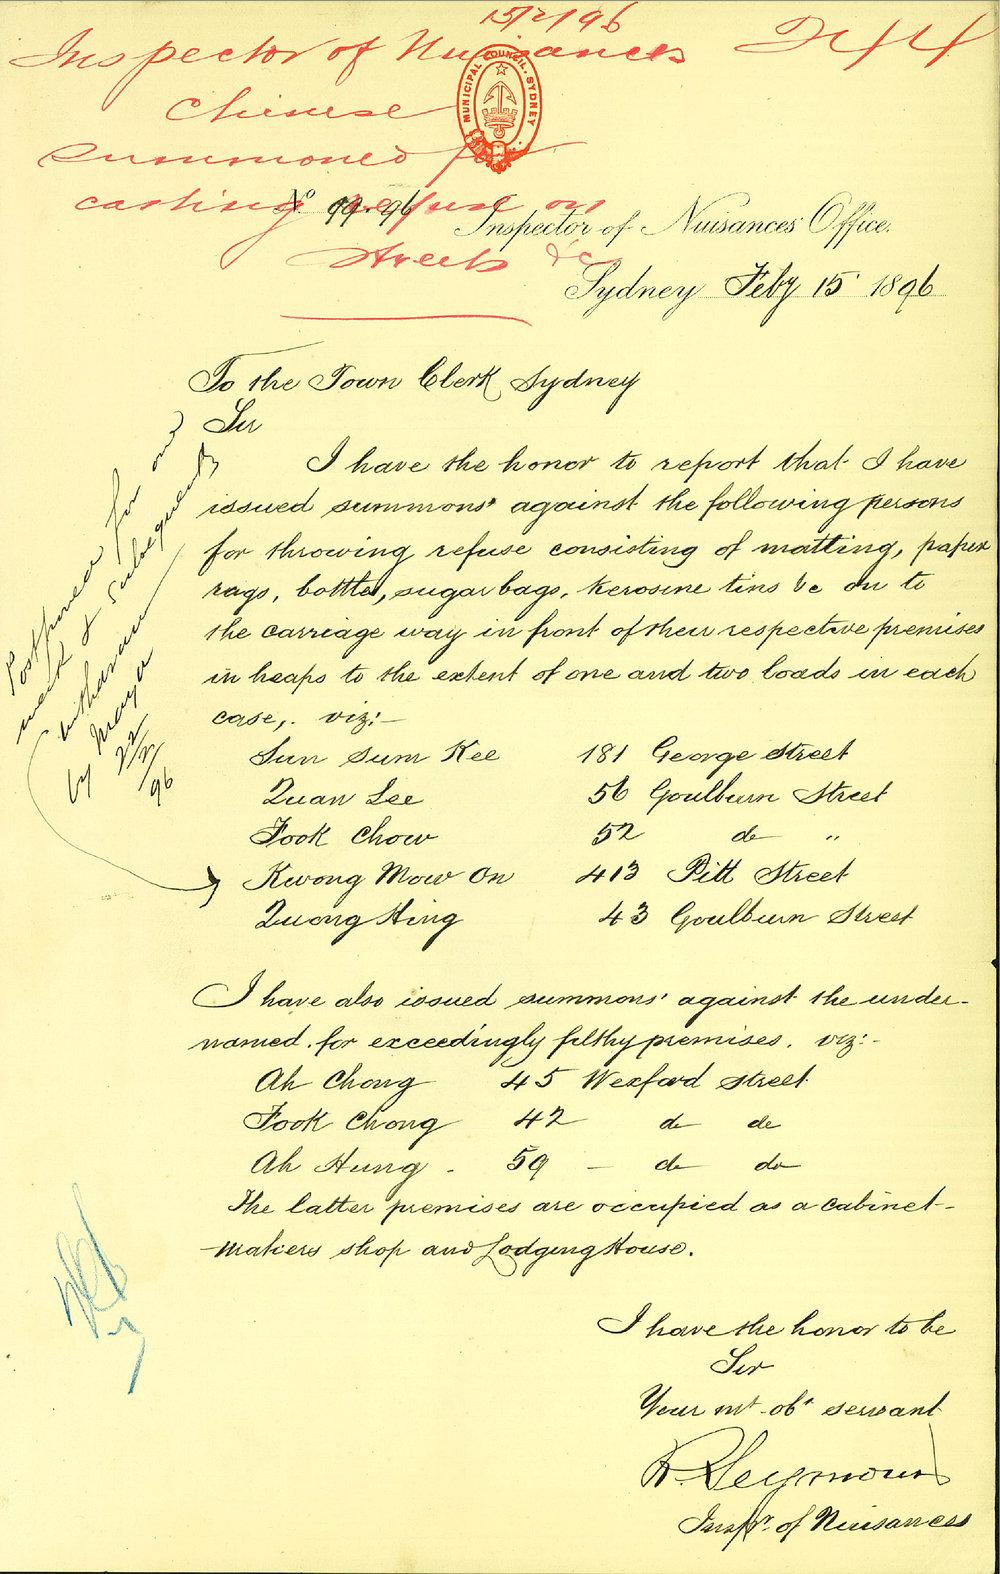 15/2/96
Inspector of Nuisances 244
Chinese
summoned for
casting refuse on
streets &c
MUNICIPAL COUNCIL. SYDNEY
No 99.96 Inspector of Nuisances Office.
Sydney Feby 15 1896
To the Town Clerk Sydney
Sir
I have the honor to report that I have
issued summons' against the following persons
for throwing refuse consisting of matting, paper
rags, bottles, sugar bags, kerosine tins &c on to
the carriage way in front of their respective premises
in heaps to the extent of one and two loads in each
case,. viz:-
Sun Sum Kee 181 George Street
Quan Lee 56 Goulburn Street
Fook Chow 52 do "
Kwong Mow On 413 Pitt Street
Quong Hing 43 Goulburn Street
Postponed for one
week & subsequently
withdrawn
by Mayor
22/2/96
I have also issued summons' against the under-
named. for exceedingly filthy premises. viz:-
Ah Chong 45 Wexford Street
Fook Chong 42 do do
Ah Hung - 59 - do do
The latter premises are occupied as a cabinet-
makers shop and Lodging House.
I have the honor to be
Sir
Your mt obt servant
R. Seymour
Inspr. of Nuisances